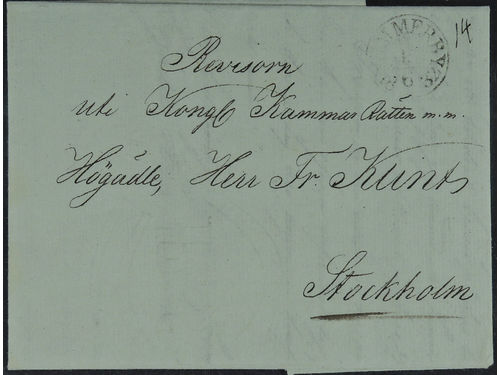 14
VIMMERBY
Revisorn
uti Kongl Kammar Rätten m.m.
Högädle, Herr Fr. Klint,
Stockholm